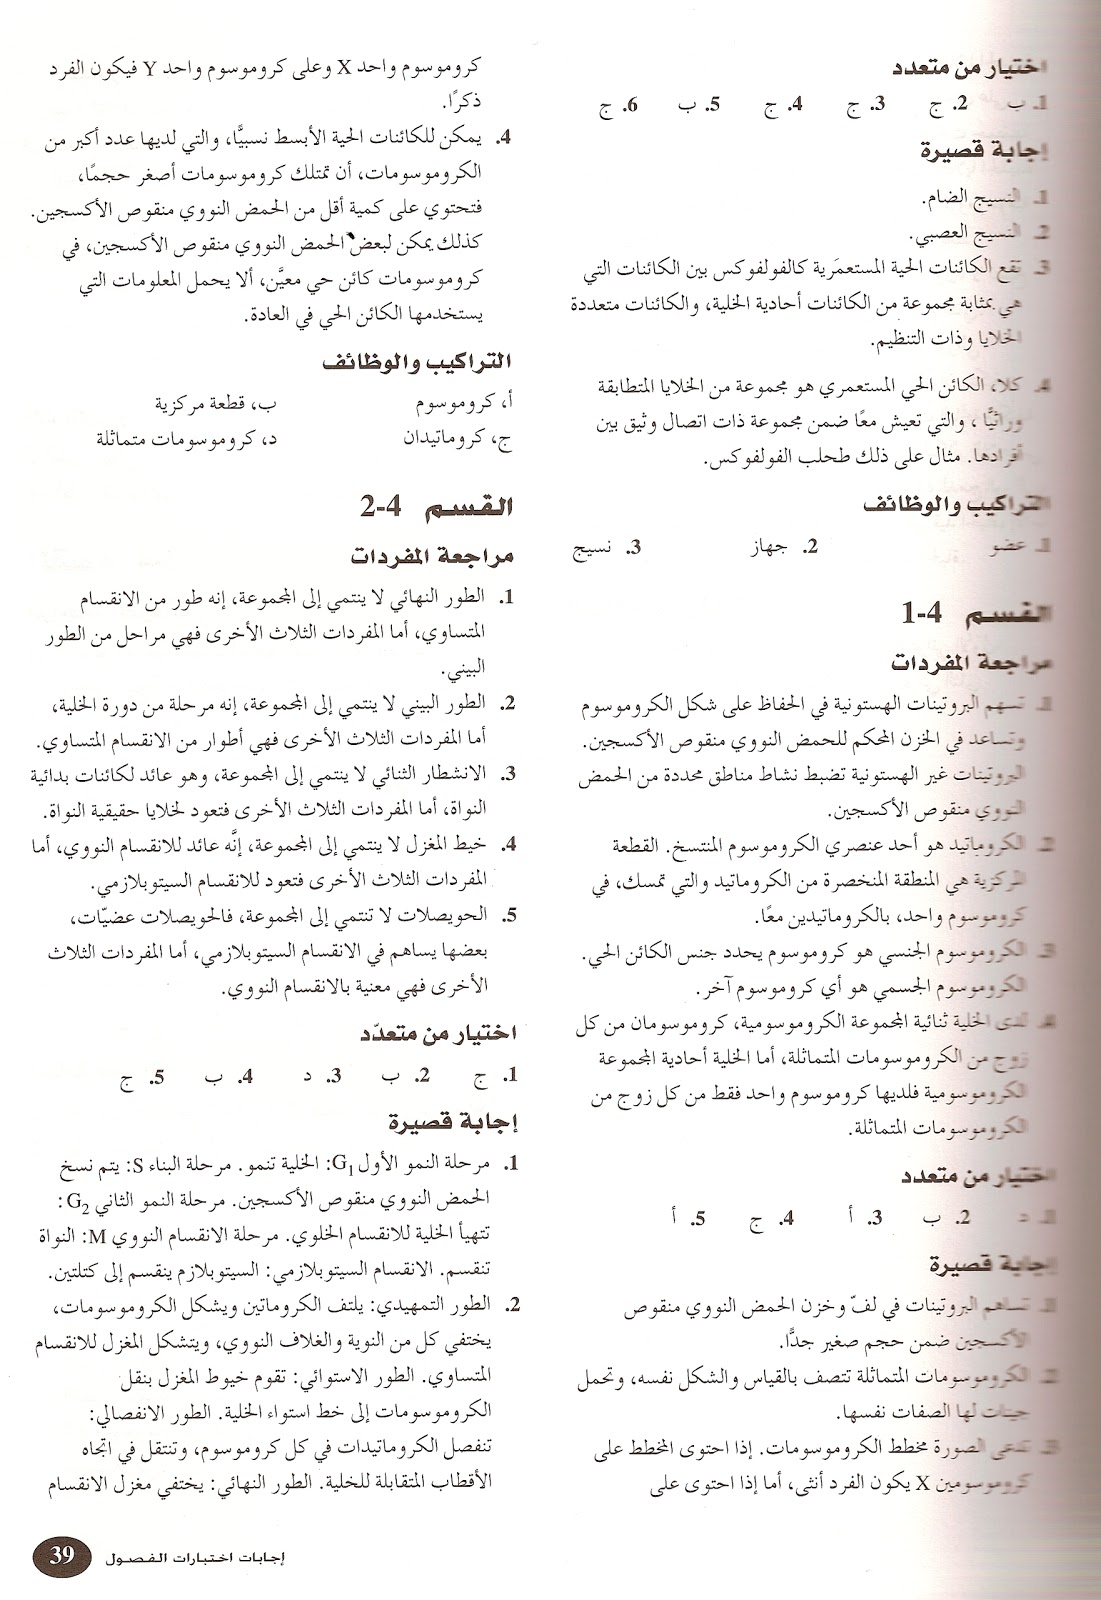 اختيار من متعدد
1. ب 2. ج 3. ج 4. ج 5. ب 6. ج
إجابة قصيرة
1. النسيج الضام.
2. النسيج العصبي.
3. تقع الكائنات الحية المستعمَرية كالفولفوكس بين الكائنات التي
هي بمثابة مجموعة من الكائنات أحادية الخلية، والكائنات متعددة
الخلايا وذات التنظيم.
4. كلا، الكائن الحي المستعمري هو مجموعة من الخلايا المتطابقة
وراثيًّا، والتي تعيش معًا ضمن مجموعة ذات اتصال وثيق بين
أفرادها. مثال على ذلك طحلب الفولفوكس.
التراكيب والوظائف
1. عضو 2. جهاز 3. نسيج
القسم 4-1
مراجعة المفردات
1. تسهم البروتينات الهستونية في الحفاظ على شكل الكروموسوم
وتساعد في الخزن المحكم للحمض النووي منقوص الأكسجين.
البروتينات غير الهستونية تضبط نشاط مناطق محددة من الحمض
النووي منقوص الأكسجين.
2. الكروماتيد هو أحد عنصري الكروموسوم المنتسخ. القطعة
المركزية هي المنطقة المنخصرة من الكروماتيد والتي تمسك، في
كروموسوم واحد، بالكروماتيدين معًا.
3. الكروموسوم الجنسي هو كروموسوم يحدد جنس الكائن الحي.
الكروموسوم الجسمي هو أي كروموسوم آخر.
4. لدى الخلية ثنائية المجموعة الكروموسومية، كروموسومان من كل
زوج من الكروموسومات المتماثلة، أما الخلية أحادية المجموعة
الكروموسومية فلديها كروموسوم واحد فقط من كل زوج من
الكروموسومات المتماثلة.
اختيار من متعدد
1. د 2. ب 3. أ 4. ج 5. أ
إجابة قصيرة
1. تساهم البروتينات في لفّ وخزن الحمض النووي منقوص
الأكسجين ضمن حجم صغير جدًّا.
2. الكروموسومات المتماثلة تتصف بالقياس والشكل نفسه، وتحمل
جينات لها الصفات نفسها.
3. تدعى الصورة مخطط الكروموسومات. إذا احتوى المخطط على
كروموسومين X يكون الفرد أنثى، أما إذا احتوى على
كروموسوم واحد X وعلى كروموسوم واحد Y فيكون الفرد
ذكرًا.
4. يمكن للكائنات الحية الأبسط نسبيًّا، والتي لديها عدد أكبر من
الكروموسومات، أن تمتلك كروموسومات أصغر حجمًا،
فتحتوي على كمية أقل من الحمض النووي منقوص الأكسجين.
كذلك يمكن لبعض الحمض النووي منقوص الأكسجين، في
كروموسومات كائن حي معيَّن، ألا يحمل المعلومات التي
يستخدمها الكائن الحي في العادة.
التراكيب والوظائف
أ، كروموسوم ب، قطعة مركزية
ج، كروماتيدان د، كروموسومات متماثلة
القسم 4-2
مراجعة المفردات
1. الطور النهائي لا ينتمي إلى المجموعة، إنه طور من الانقسام
المتساوي، أما المفردات الثلاث الأخرى فهي مراحل من الطور
البيني.
2. الطور البيني لا ينتمي إلى المجموعة، إنه مرحلة من دورة الخلية،
أما المفردات الثلاث الأخرى فهي أطوار من الانقسام المتساوي.
3. الانشطار الثنائي لا ينتمي إلى المجموعة، وهو عائد لكائنات بدائية
النواة، أما المفردات الثلاث الأخرى فتعود لخلايا حقيقية النواة.
4. خيط المغزل لا ينتمي إلى المجموعة، إنَّه عائد للانقسام النووي، أما
المفردات الثلاث الأخرى فتعود للانقسام السيتوبلازمي.
5. الحويصلات لا تنتمي إلى المجموعة، فالحويصلات عضيّات،
بعضها يساهم في الانقسام السيتوبلازمي، أما المفردات الثلاث
الأخرى فهي معنية بالانقسام النووي.
اختيار من متعدّد
1. ج 2. ب 3. د 4. ب 5. ج
إجابة قصيرة
1. مرحلة النمو الأول G₁: الخلية تنمو. مرحلة البناء S: يتم نسخ
الحمض النووي منقوص الأكسجين. مرحلة النمو الثاني G₂:
تتهيأ الخلية للانقسام الخلوي. مرحلة الانقسام النووي M: النواة
تنقسم. الانقسام السيتوبلازمي: السيتوبلازم ينقسم إلى كتلتين.
2. الطور التمهيدي: يلتف الكروماتين ويشكل الكروموسومات،
يختفي كل من النوية والغلاف النووي، ويتشكل المغزل للانقسام
المتساوي. الطور الاستوائي: تقوم خيوط المغزل بنقل
الكروموسومات إلى خط استواء الخلية. الطور الانفصالي:
تنفصل الكروماتيدات في كل كروموسوم، وتنتقل في اتجاه
الأقطاب المتقابلة للخلية. الطور النهائي: يختفي مغزل الانقسام
إجابات اختبارات الفصول 39